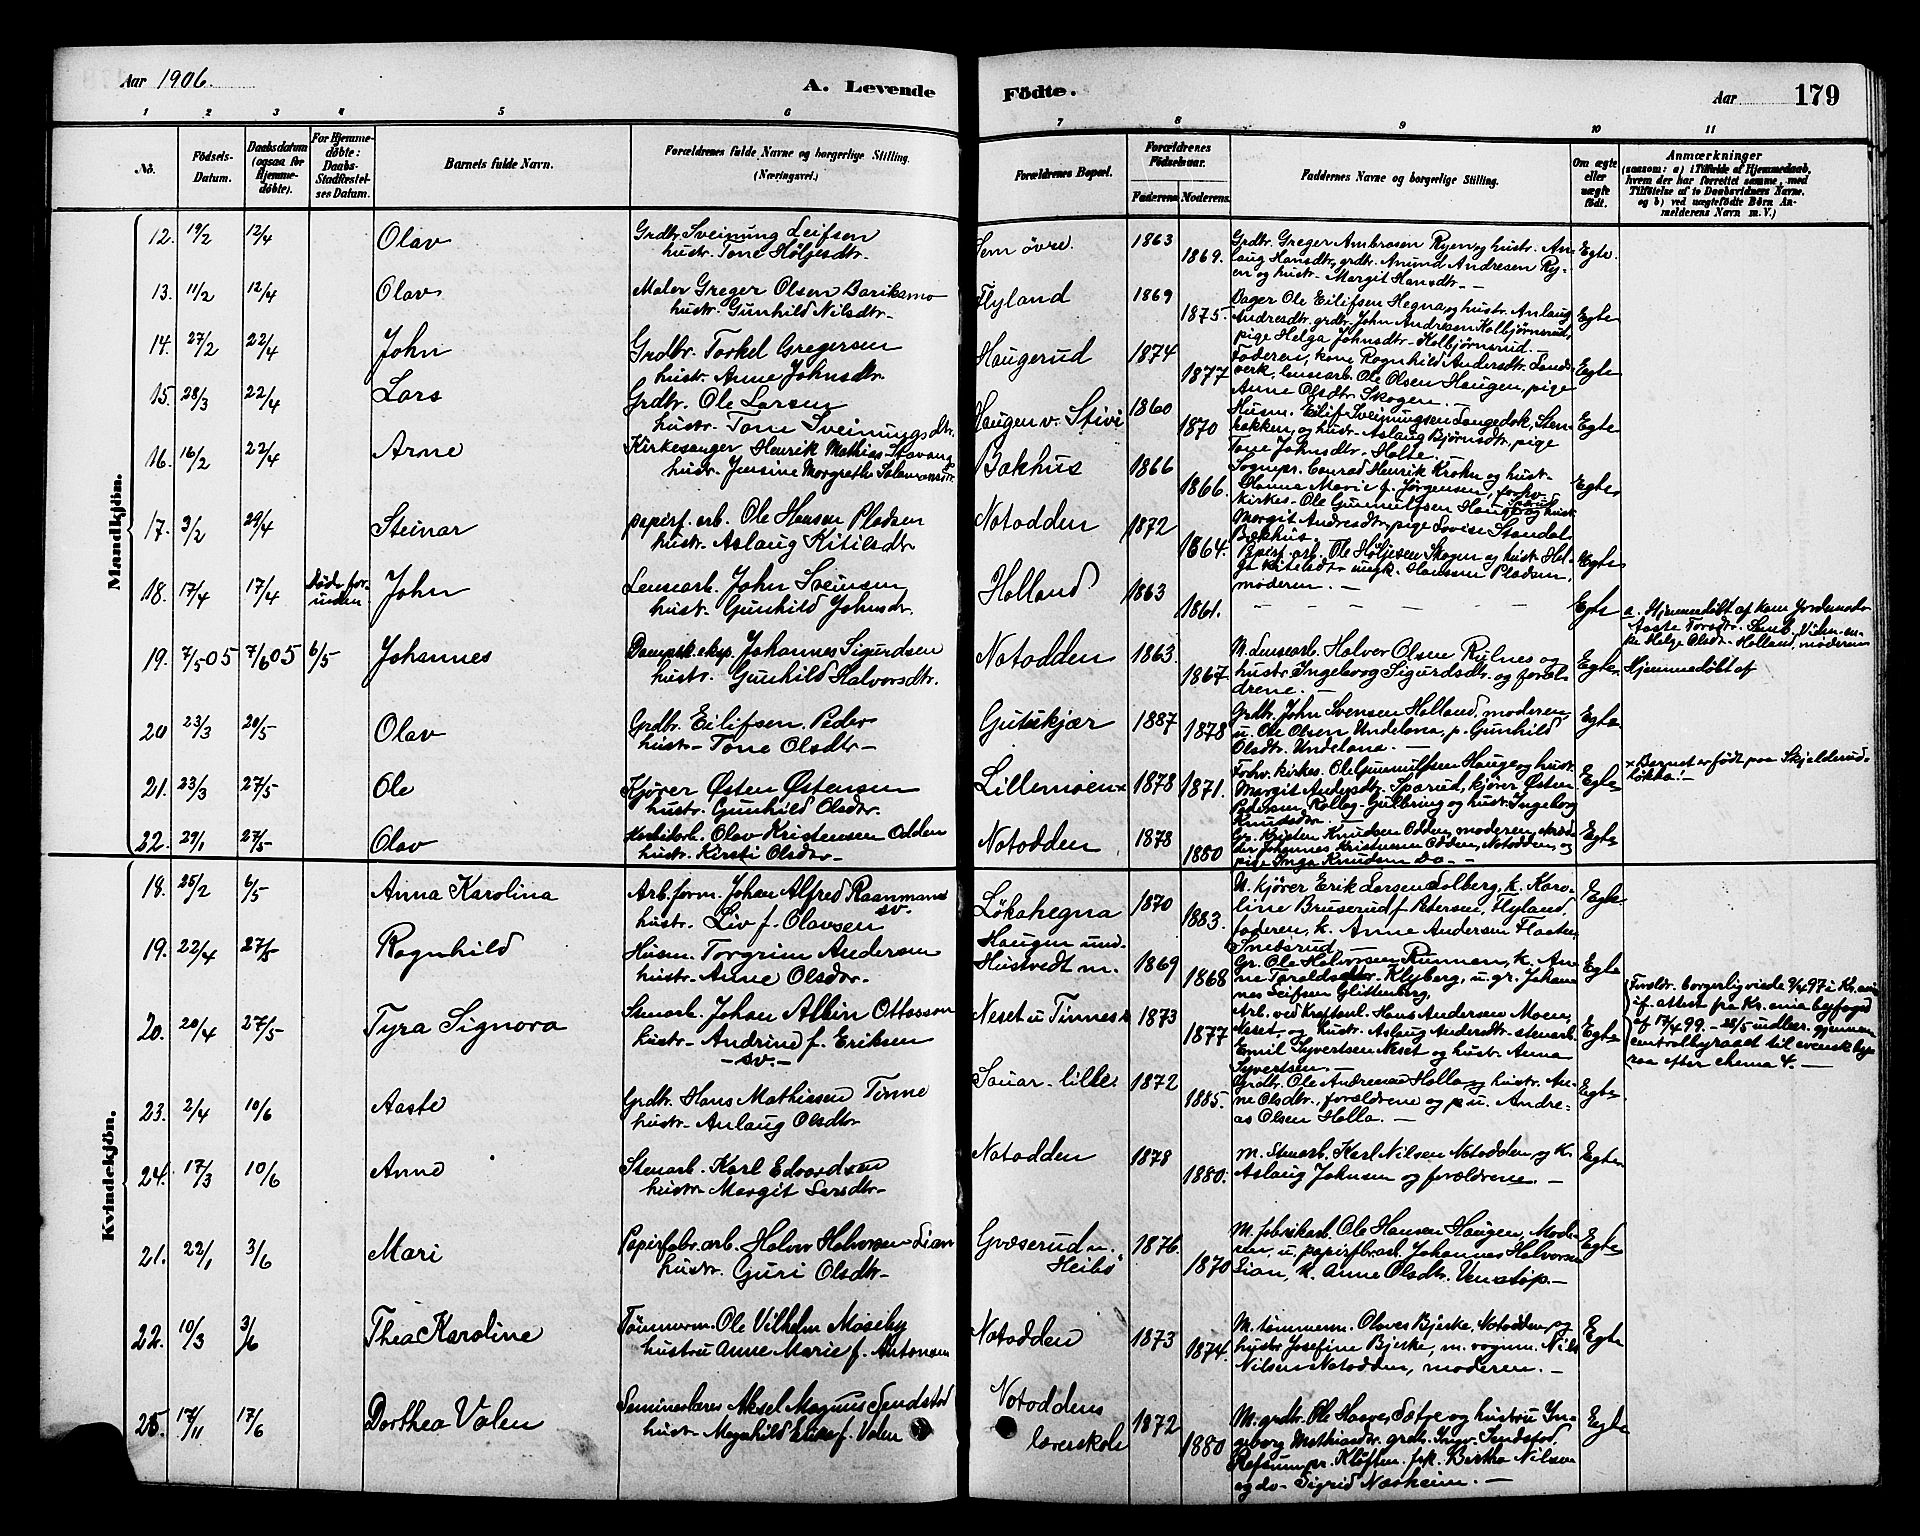 Aar 1906.
A. Levende
Födte.
Aar
179
1 2 3 4 5 6 7 8 9 10 11
No.
Födsels-Datum.
Daabsdatum (ogsaa for Hjemme-døbte).
For Hjemme-døbte: Daabs-Stadfæstel-ses Datum.
Barnets fulde Navn.
Forældrenes fulde Navne og borgerlige Stilling. (Næringsvei.)
Forældrenes Bopæl.
Forældrenes Födselsaar.
Faderens. Moderens.
Faddernes Navne og borgerlige Stilling.
Om ægte eller uægte født.
Anmærkninger
(saasom: a) i Tilfælde af Hjemmedaab,
hvem der har forrettet samme, med
Tilføielse af to Daabsvidners Navne.
og b) ved uægtefødte Børn An-
melderens Navn m. V.)
Mandkjön.
12. 19/2 12/4 Olav Grdbr. Sveinung Leifsen
hustr. Tone Höljesdtr.
Sem övre. 1863 1869.
Grdbr. Greger Ambrosen Ryen og hustr. An-
laug Hansdtr, grdbr. Anund Andresen Ry-
en og hustr. Margit Hansdtr. —
Egte.
13. 11/2 12/4 Olav Maler Greger Olsen Bariksmo
hustr. Gunhild Nilsdtr-
Flyland 1869 1875.
Bager Ole Eilifsen Hegna og hustr. Anlaug
Andresdtr. grdbr. John Andresen Kolbjørnsrud,
pige Helga Johnsdtr. Kolbjørnsrud. —
Egte
14. 27/2 22/4 John Grdbr. Torkel Gregersen
hustr. Anne Johnsdtr.
Haugerud 1874 1877
Faderen, kone Ragnhild Andersdtr. Land-
verk, lensearb. Ole Olsen Haugen, pige
Anne Olsdtr. Skogen. —
Egte
15. 28/3 22/4 Lars Grdbr. Ole Larsen
hustr. Tone Sveinungsdtr.
Haugen v. Stivi 1860 1870
Husm. Eilif Sveinungsen Langedok,
og hustr. Aslaug Bjørnsdtr, pige
Tone Johnsdtr. Holte. —
Egte
16. 16/2 22/4 Arne Kirkesanger Henrik Mathias Stavang
hustr. Jensine Margrethe
Bakhus 1866 1866.
Sognpr. Conrad Henrik Krohn og hust-
Olanna Marie f. Jørgensen, forhv.
kirkes. Ole Gunnulfsen Hauge og hustr.
Margit Andresdtr, pige Lovise Standal.
Bækhus.
Egte
17. 3/2 29/4 Steinar papirf. arb. Ole Hansen Pladsen
hustr. Aslaug Kitilsdtr
Notodden 1872 1864.
Papirf. arb. Ole Höljesen Skogen og hustr. Hel-
ga Kitelsdtr ungk. Hansen Pladsen,
moderen. —
Egte
18. 17/4 17/4 Døde for-
inden John Lensearb. John Sveinsen
hustr. Gunhild Johnsdr.
Holland 1863 1861.
— — — — — —
Egte
a. Hjemmedøbt af kone Jordemoder
Aaste Torsdtr. Vidn. en-
ke Helge Olsdt- Holland, moderen
19. 7/5 05 7/6 05 6/5 Johannes Dampsk.eksp. Johannes Sigurdsen
hustr. Gunhild Halvorsdtr.
Notodden 1863 1867.
M. lensearb. Halvor Olsen Rylnes og
hustr Ingeborg Sigurdsdtr. og foræl-
drene. —
Egte
Hjemmedøbt af
20 23/3 20/5 Olav Grdbr. Eilifsen Peder
hustr- Tone Olsdtr-
Gutukjær 1887 1878
Grdbr. John Svensen Holland, moderen,
u. Ole Olsen Undelana, p. Gunhild
Olsdtr. Undelana. —
Egte
21. 23/3 27/5 Ole Kjörer Østen Østensen
hustr. Gunhild Olsdtr.
Lillemoen x 1878 1871.
Forhv. kirkes. Ole Gunnulfsen Hauge og hustr
Margit Andresdtr. Sparud, kjörer Østen
Pedersen Rollag-Gulbring og hustr. Ingeborg
Knudsdtr —
Egte
x Barnet er født paa Skjelderud-
løkka. —
22. 29/1 27/5 Olav Olav Kristensen Odden
hustr. Kirsti Olsdtr-
Notodden 1878 1880
Gr. Kristen Knudsen Odden, moderen, skræd-
der Johannes Kristensen Odden, Notodden, og
pige Inga Knudsen Do. —
Egte
Kvindekjön.
18. 25/2 6/5 Anna Karolina Arb.form. Johan Alfred Raanmann
sv.
hustr. Liv f. Olavsen
Lökahegna 1870 1883.
M. kjörer Erik Larsen Solberg, k. Karo-
line Bruserud f. Petersen, Flyland,
faderen, k. Anne Andersen Flaaten,
Snebsrud. —
Egte
19. 22/4 27/5 Ragnhild Husm. Torgrim Andersen
hustr. Anne Olsdtr.
Haugen und.
Hustvedt m. 1869 1868
Gr. Ole Halvorsen Runnan, k. An-
ne Taraldsdtr. Klyberg, u. gr. Johan-
nes Leifsen Glittenberg.
Egte
20. 20/4 27/5 Tyra Signora Stenarb. Johan Albin Ottosson
hustr- Andrine f. Eriksen
— sv. —
Neset u Tinnesa 1873 1877
Arb. ved kraftanl. Hans Andersen Moen,
Neset, og hustr. Aslaug Andersdtr- stenarb.
Emil Syvertsen Neset og hustr. Anna
Syvertsen. —
Egte
Foreldr. borgerlig viede 9/4 97 i Kr.ania
if. attest fra Kr.ania byfoged
af 17/4 99. - 28/5 udleer. gjennem
centralbyraaet til svensk by-
raa efter chema 4. —
23. 2/4 10/6 Aaste Grdbr. Hans Mathissen Tinne
hustr. Anlaug Olsdtr
Sauar-lille. 1872 1885.
Grdbr. Ole Andreasen Holla og hustr. An-
ne Olsdtr., forældrene og p u. Andre-
as Olsen Holla. —
Egte
24. 17/3 10/6 Anne Stenarb. Karl Edvardsen
hustr- Margit Larsdtr-
Notodden 1878 1880.
M. Stenarb. Karl Nilsen Notodden og k.
Aslaug Johnsen og forældrene. —
Egte
21. 22/1 3/6 Mari Papirfabr. arb. Halvor Halvorsen Lian
hustr. Guri Olsdtr-
Græserud u.
Heibö 1876. 1870
M. fabrikarb. Ole Hansen Haugen, Mode-
ren, u. papirfbr.arb. Johannes Halvorsen
Lian, k. Anne Olsdtr. Venstøp. —
Egte
22. 10/3 3/6 Thea Karoline Tömmerm. Ole Vilhelm Moseby
hustru Anne Marie f. Antonsen
Notodden 1873 1874.
M. tømmerm. Olaves Bjerke, Notodden og
hustr Josefine Bjerke, m. vognm. Nils
Nilsen Notodden, moderen. —
Egte
25. 17/11 17/6 Dorthea Valen Seminarlærer Aksel Magnus Sendstad
hustr- Magnhild Elise f. Valen
Notoddens
lærerskole 1872 1880
M. grdbr. Ole Sætre og hustru In-
geborg Mathiasdtr. grdb. Ingv. Sendstad,
Refsum pr. Kløften. frk. Bertha Nilsen
og do- Sigrid Nasheim. —
Egte